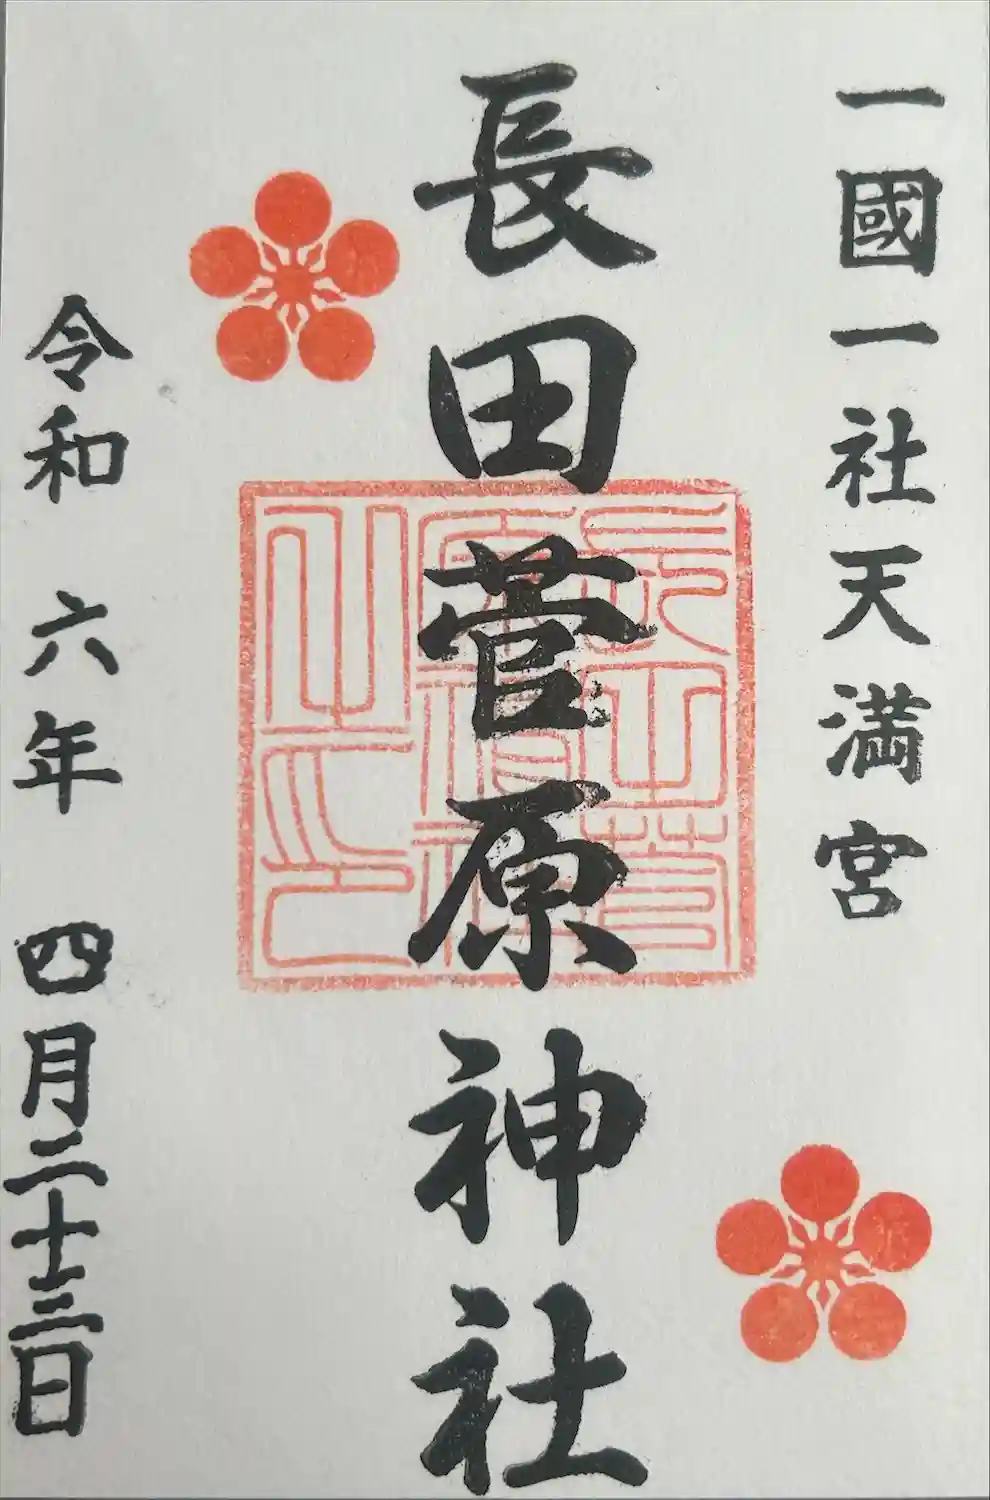 一國一社天満宮
長田菅原神社
令和六年四月二十三日